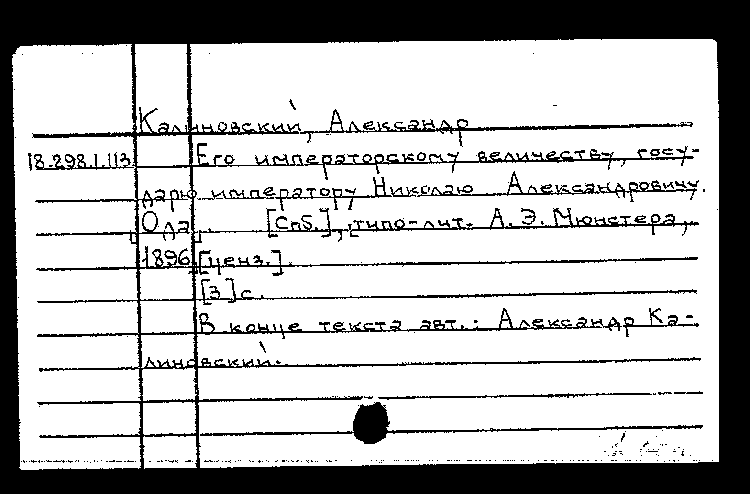 Калиновский, Александр
18-298.1.113 Его императорскому величеству, госу-
дарю императору Николаю Александровичу.
[Ода]. [Спб.], типо-лит. А.Э. Мюнстера,
1896 [ценз.].
[3] с.
В конце текста авт.: Александр Ка-
линовский.